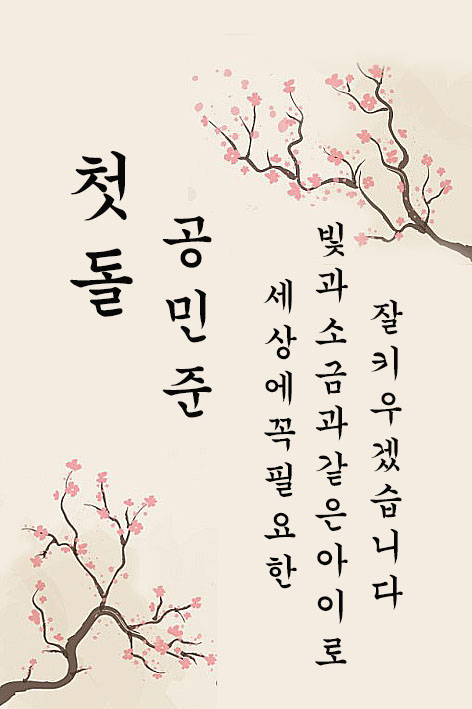 첫돌
공민준
세상에꼭필요한
빛과소금과같은아이로
잘키우겠습니다